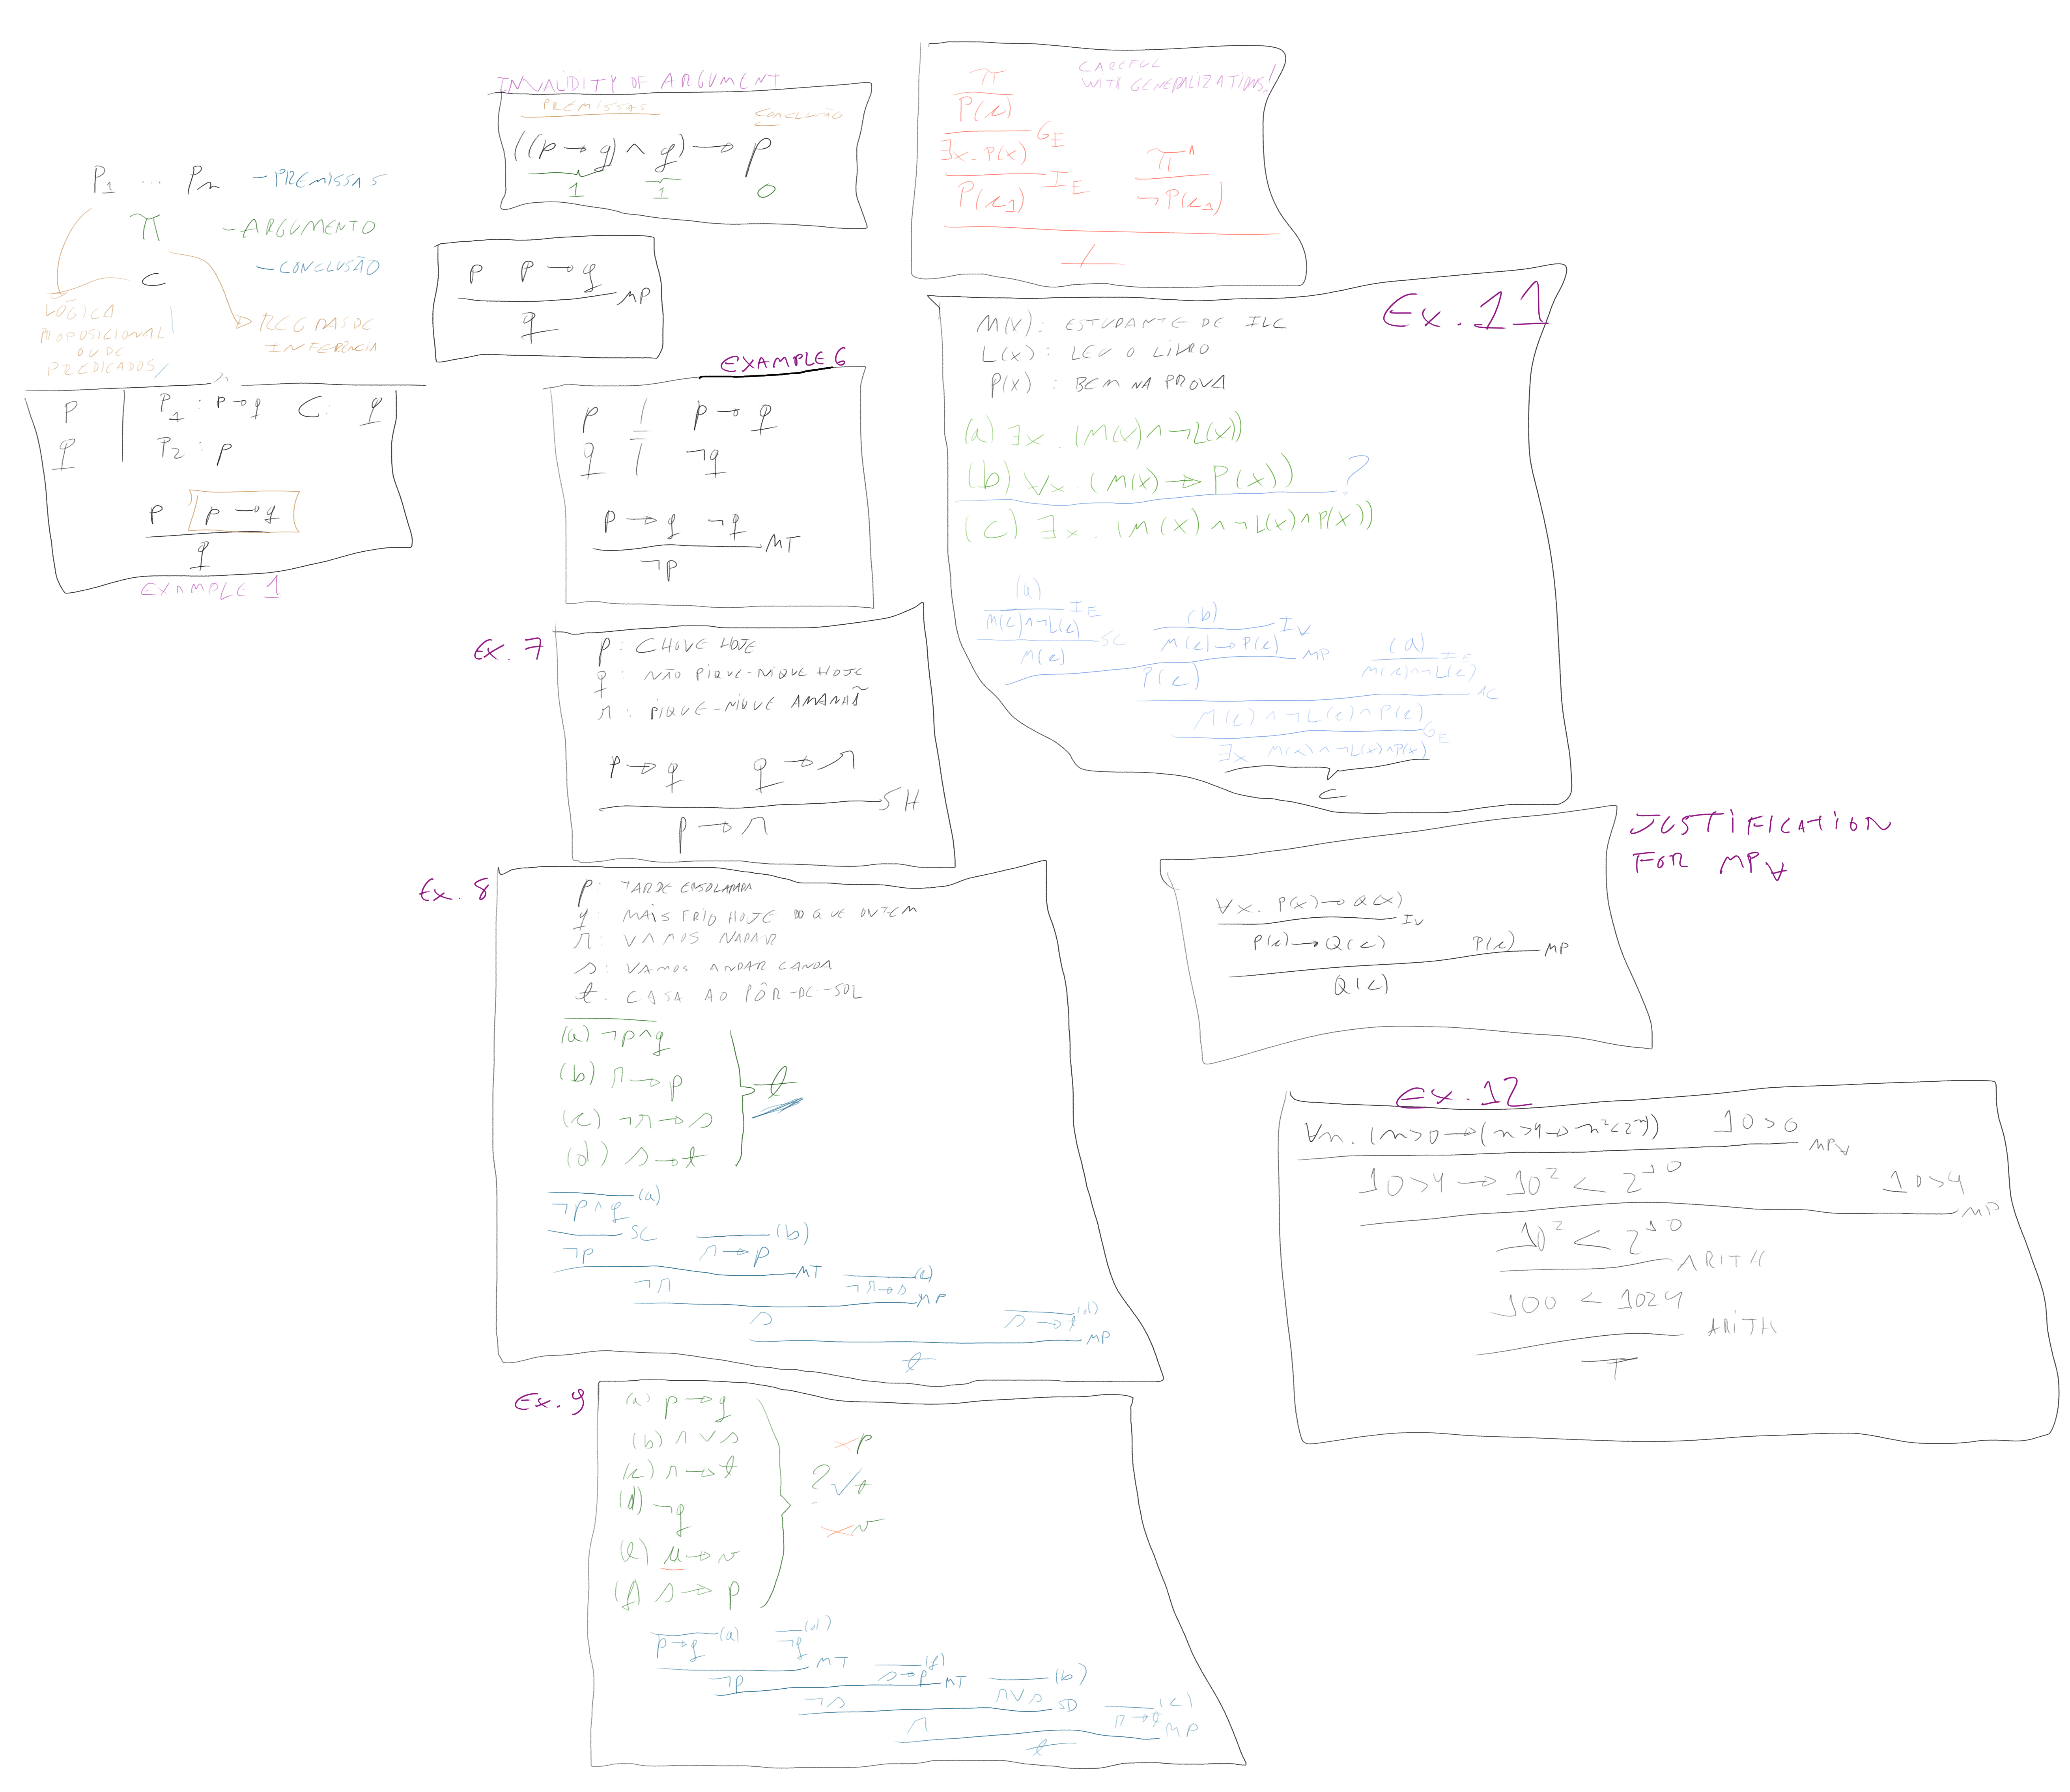 P1 ... Pn - PREMISSAS
π - ARGUMENTO
C - CONCLUSÃO
LÓGICA
PROPOSICIONAL
OU DE
PREDICADOS
REGRAS DE
INFERÊNCIA
p P1: p → q C: q
q P2: p
p p → q
q
EXAMPLE 1
INVALIDITY OF ARGUMENT
PREMISSAS CONCLUSÃO
((p → q) ∧ q) → p
1 1 0
p p → q
MP
q
EXAMPLE 6
p p → q
q ¬q
p → q ¬q
MT
¬p
Ex. 7
p: CHOVE HOJE
q: NÃO PIQUE-NIQUE HOJE
r: PIQUE-NIQUE AMANHÃ
p → q q → r
SH
p → r
Ex. 8
p: TARDE ENSOLARADA
q: MAIS FRIO HOJE DO QUE ONTEM
r: VAMOS NADAR
s: VAMOS ANDAR CANOA
t: CASA AO PÔR-DE-SOL
(a) ¬p ∧ q
(b) r → p
(c) ¬r → s
(d) s → t
t
(a)
¬p ∧ q
SC (b)
¬p r → p
MT (c)
¬r ¬r → s
MP (d)
s s → t
MP
t
Ex. 9
(a) p → q
(b) r ∨ s
(c) r → t
(d) ¬q
(e) u → v
(f) s → p
× p
? √ t
× v
(a) (d)
p → q ¬q
MT (f)
¬p s → p
MT (b)
¬s r ∨ s
SD (c)
r r → t
MP
t
CAREFUL
WITH GENERALIZATIONS!
π
P(c)
GE
∃x. P(x) π'
IE
P(c1) ¬P(c1)
⊥
Ex. 11
M(x): ESTUDANTE DE ILC
L(x): LEU O LIVRO
P(x): BEM NA PROVA
(a) ∃x. (M(x) ∧ ¬L(x))
(b) ∀x (M(x) → P(x))
?
(c) ∃x. (M(x) ∧ ¬L(x) ∧ P(x))
(a)
IE (b)
M(c) ∧ ¬L(c) I∀
SC (a)
M(c) M(c) → P(c) IE
MP
P(c) M(c) ∧ ¬L(c)
∧C
M(c) ∧ ¬L(c) ∧ P(c)
GE
∃x M(x) ∧ ¬L(x) ∧ P(x)
C
JUSTIFICATION
FOR MP∀
∀x. P(x) → Q(x)
I∀
P(c) → Q(c) P(c)
MP
Q(c)
Ex. 12
∀n. (n>0 → (n>4 → n² < 2ⁿ)) 10>0
MP∀
10>4 → 10² < 2¹⁰ 10>4
MP
10² < 2¹⁰
ARITH
100 < 1024
ARITH
T